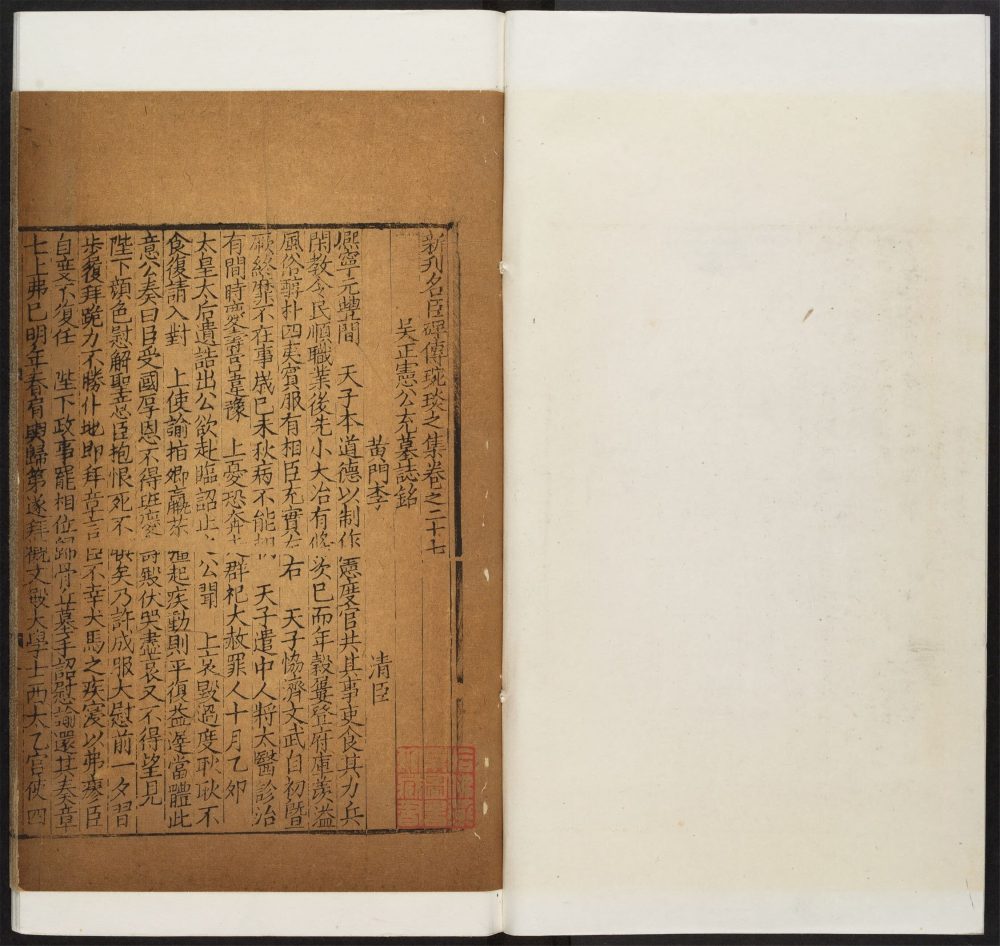 新刋名臣碑傳琬琰之集卷之二十七
吴正憲公充墓誌銘
黃門李 清臣
熈寧元豐間 天子本道德以制作 憲度官共其事吏食其力兵
閑教令民順職業後先小大冶有 次巳而年穀婁登府庫羨溢
風俗醇朴四夷賔服有相臣充實左右 天子恊濟文武自初曁
厥終靡不在事歳巳未秋病不能朝 天子遣中人將太醫診治
有間時慶壽宫違豫 上憂恐奔走群祀大赦罪人十月乙夘
太皇太后遺誥出公欲赴臨詔止之公聞 上哀毀過度耿耿不
食復請入對 上使諭柏卿羸茶 起疾勤則平復益遲當體此
意公奏曰臣受國厚恩不得 毀伏哭盡哀又不得望見
陛下顔色慰解聖 臣抱恨死不 矣乃許成服大慰前一夕習
步履拜跪力不勝仆地即拜章言臣不幸犬馬之疾寖以弗瘳臣
自 不復任 陛下政事罷相位歸骨丘墓手詔慰諭還其奏章
七上弗巳明年春肩輿歸第遂拜觀文殿大學士西太乙宫使四